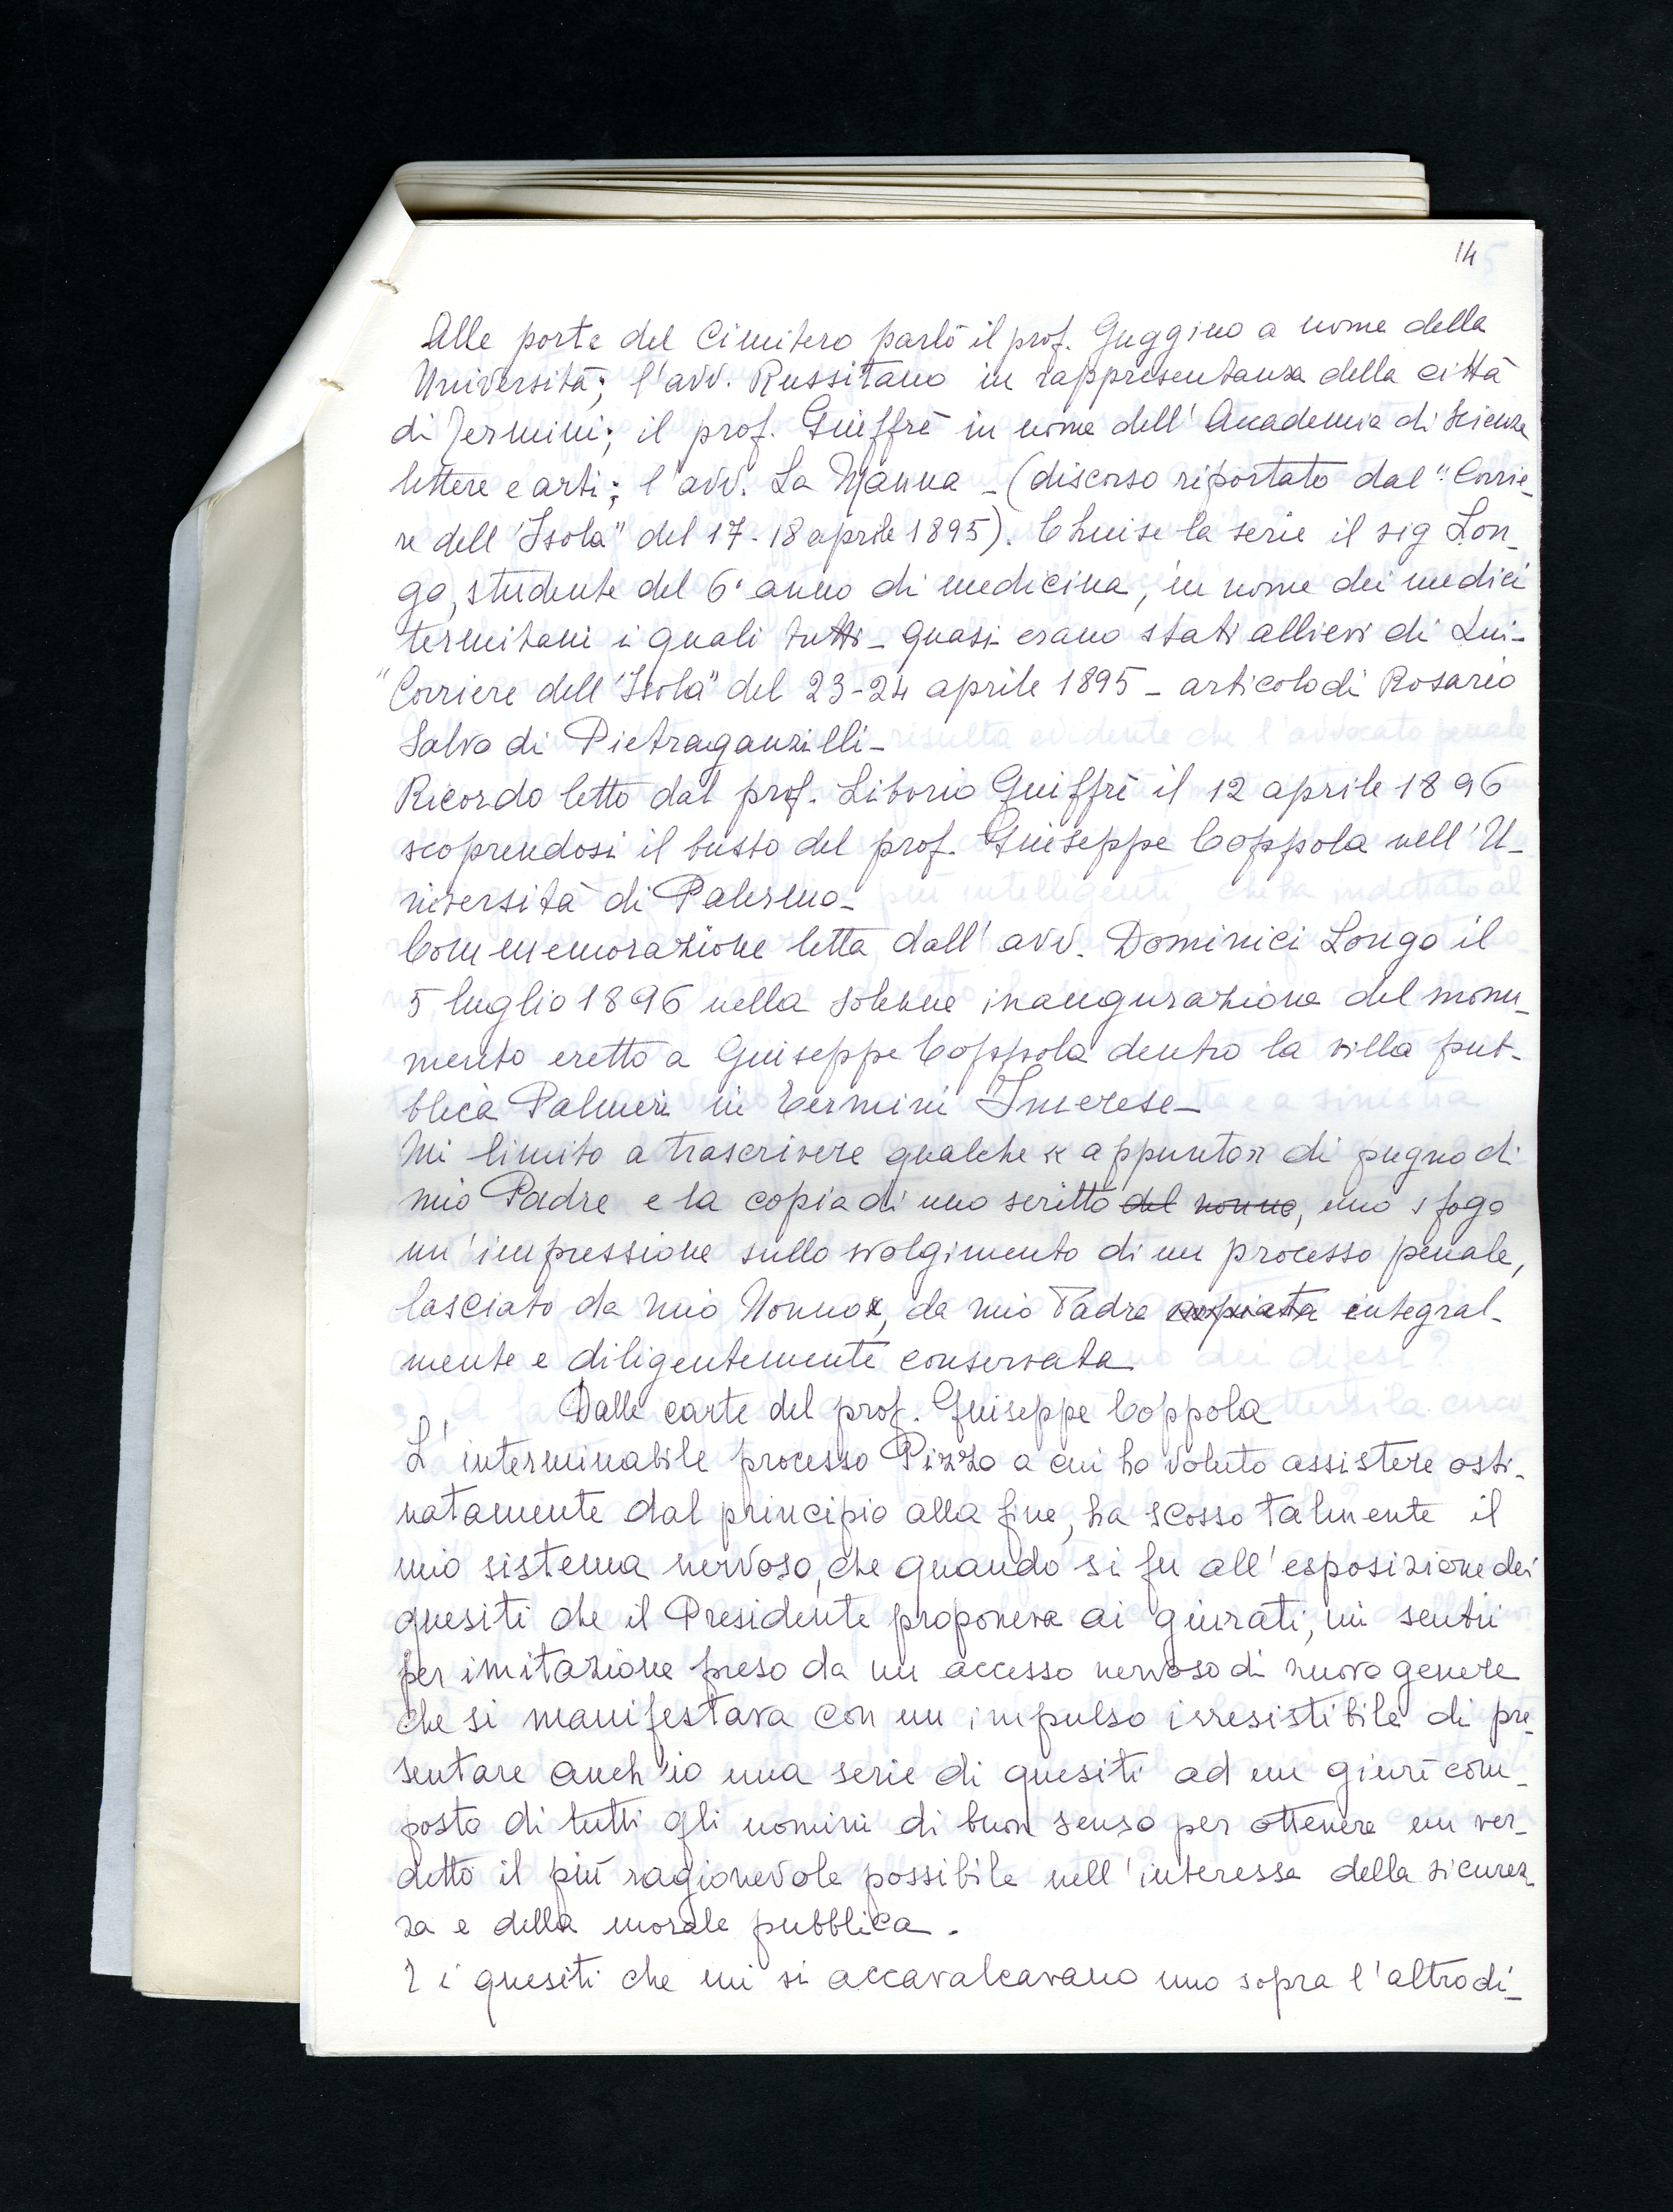 14
Alle porte del Cimitero parlò il prof. Guggino a nome della
Università; l'avv. Russitano in rappresentanza della città
di Termini; il prof. Giuffrè in nome dell'Accademia di Scienze
lettere e arti; l'avv. La Manna - (discorso riportato dal "Corrie-
re dell'Isola" del 17-18 aprile 1895). Chiuse la serie il sig Lon-
go, studente del 6° anno di medicina, in nome dei medici
termitani i quali tutti - quasi erano stati allievi di Lui -
"Corriere dell'Isola" del 23-24 aprile 1895 - articolo di Rosario
Salvo di Pietraganzilli -
Ricordo letto dal prof. Liborio Giuffrè il 12 aprile 1896
scoprendosi il busto del prof. Giuseppe Coppola nell'U-
niversità di Palermo -
Commemorazione letta dall'avv. Dominici Longo il
5 luglio 1896 nella solenne inaugurazione del monu-
mento eretto a Giuseppe Coppola dentro la villa pub-
blica Palmeri in Termini Imerese -
Mi limito a trascrivere qualche appunto di pugno di
mio Padre e la copia di uno scritto del nonno, uno sfogo
un'impressione sullo svolgimento di un processo penale,
lasciato da mio Nonno, da mio Padre copiata integral-
mente e diligentemente conservata
Dalle carte del prof. Giuseppe Coppola
L'interminabile processo Pizzo a cui ho voluto assistere osti-
natamente dal principio alla fine, ha scosso talmente il
mio sistema nervoso, che quando si fu all'esposizione dei
quesiti che il Presidente proponeva ai giurati, mi sentii
per imitazione preso da un accesso nervoso di nuovo genere
che si manifestava con un impulso irresistibile di pre-
sentare anch'io una serie di quesiti ad un giurì com-
posto di tutti gli uomini di buon senso per ottenere un ver-
detto il più ragionevole possibile nell'interesse della sicurez-
za e della morale pubblica.
E i quesiti che mi si accavalcavano uno sopra l'altro di-